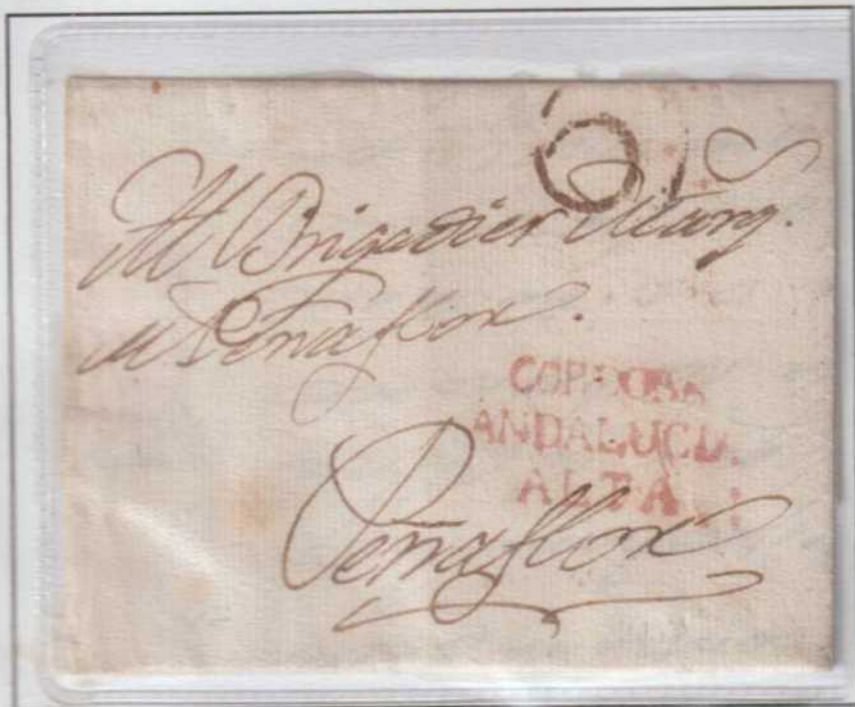 Al Brigadier Marq.
de Peñaflor.
CORDOBA
ANDALUCIA.
ALTA
Peñaflor